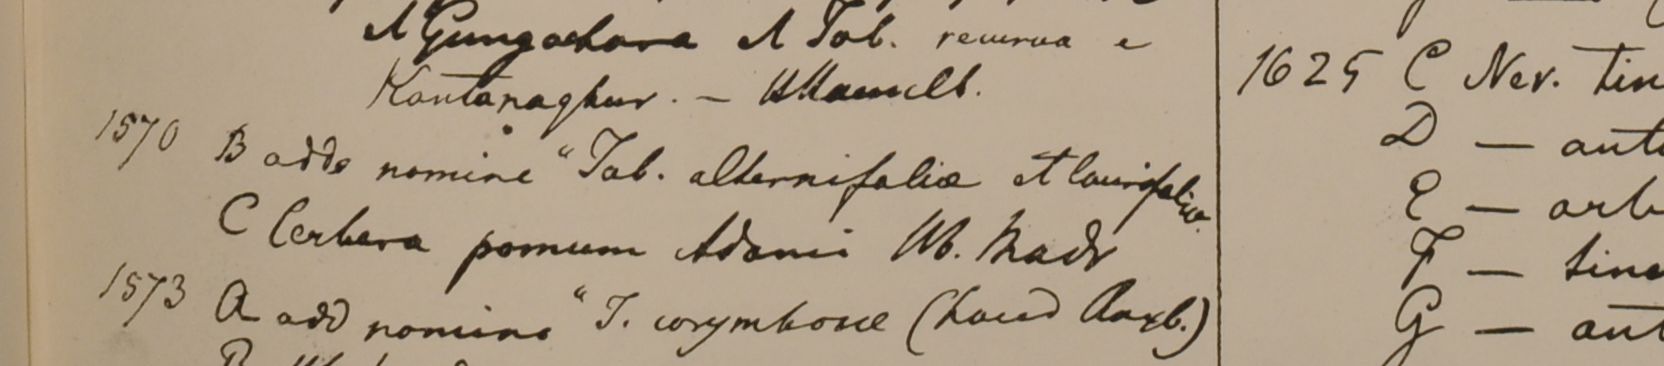 A Gungachora A Tab. recurva e
Kantanaghur. — HHamilt.
1570 B adde nomine "Tab. alternifoliæ et laurifoliæ.
C Cerbera pomum Adami Hb. Madr
1573 A add nomine "T. corymbosæ (haud Roxb.)
1625 C Ner. tin
D — anto
E —
F — tinc
G —